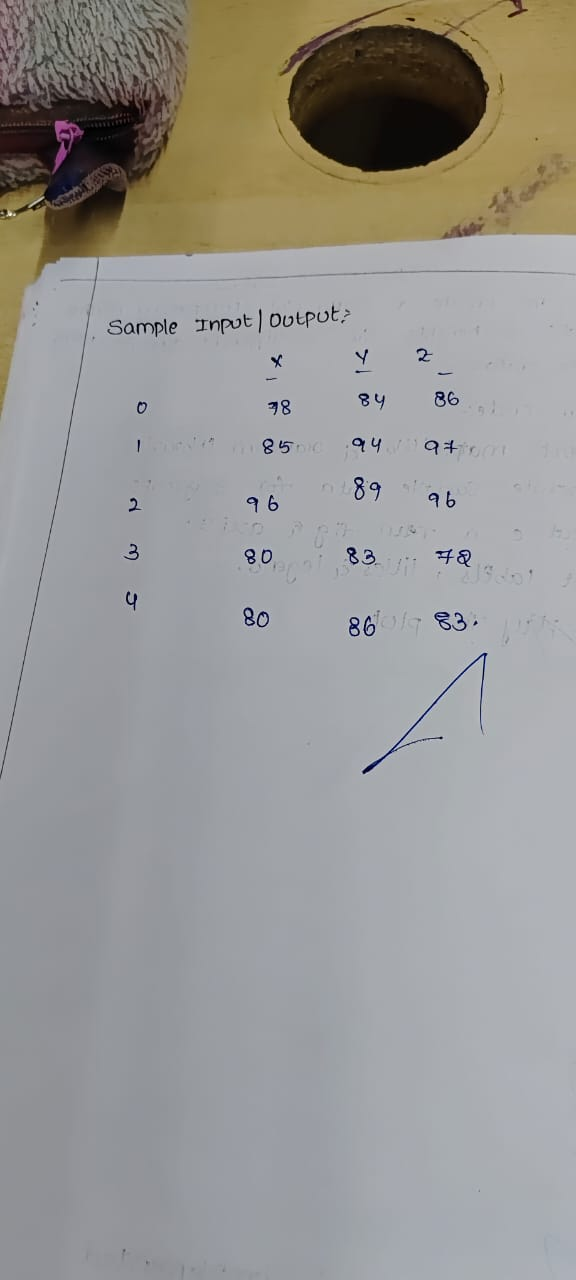 Sample Input / Output:
X Y Z
0 78 84 86
1 85 94 97
2 96 89 96
3 80 83 72
4 80 86 83.